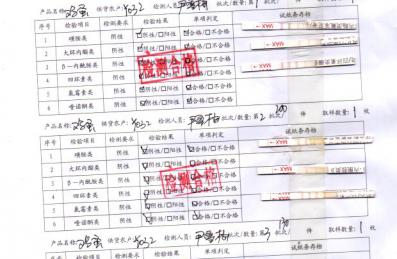 产品名称:鸡蛋 供货农户:4032 检测人员: 批次/数量:第1批次/ 件 取样数量:1枚
序号 检验项目 检测要求 检验结果 单项判定 试纸条存档
1 磺胺类 阴性 ☑阴性/□阳性 ☑合格/□不合格
2 大环内酯类 阴性 ☑阴性/□阳性 ☑合格/□不合格
3 β-内酰胺类 阴性 ☑阴性/□阳性 ☑合格/□不合格
4 四环素类 阴性 ☑阴性/□阳性 ☑合格/□不合格
5 氟霉素类 阴性 ☑阴性/□阳性 ☑合格/□不合格
6 喹诺酮类 阴性 ☑阴性/□阳性 ☑合格/□不合格
检测合格
MAX
MAX
产品名称:鸡蛋 供货农户:4032 检测人员: 批次/数量:第2批次/ 件 取样数量:1枚
序号 检验项目 检测要求 检验结果 单项判定 试纸条存档
1 磺胺类 阴性 ☑阴性/□阳性 ☑合格/□不合格
2 大环内酯类 阴性 ☑阴性/□阳性 ☑合格/□不合格
3 β-内酰胺类 阴性 ☑阴性/□阳性 ☑合格/□不合格
4 四环素类 阴性 ☑阴性/□阳性 ☑合格/□不合格
5 氟霉素类 阴性 ☑阴性/□阳性 ☑合格/□不合格
6 喹诺酮类 阴性 ☑阴性/□阳性 ☑合格/□不合格
检测合格
MAX
产品名称:鸡蛋 供货农户:4032 检测人员: 批次/数量:第3批次/ 件 取样数量:1枚
检测要求 检验结果 单项判定 试纸条存档